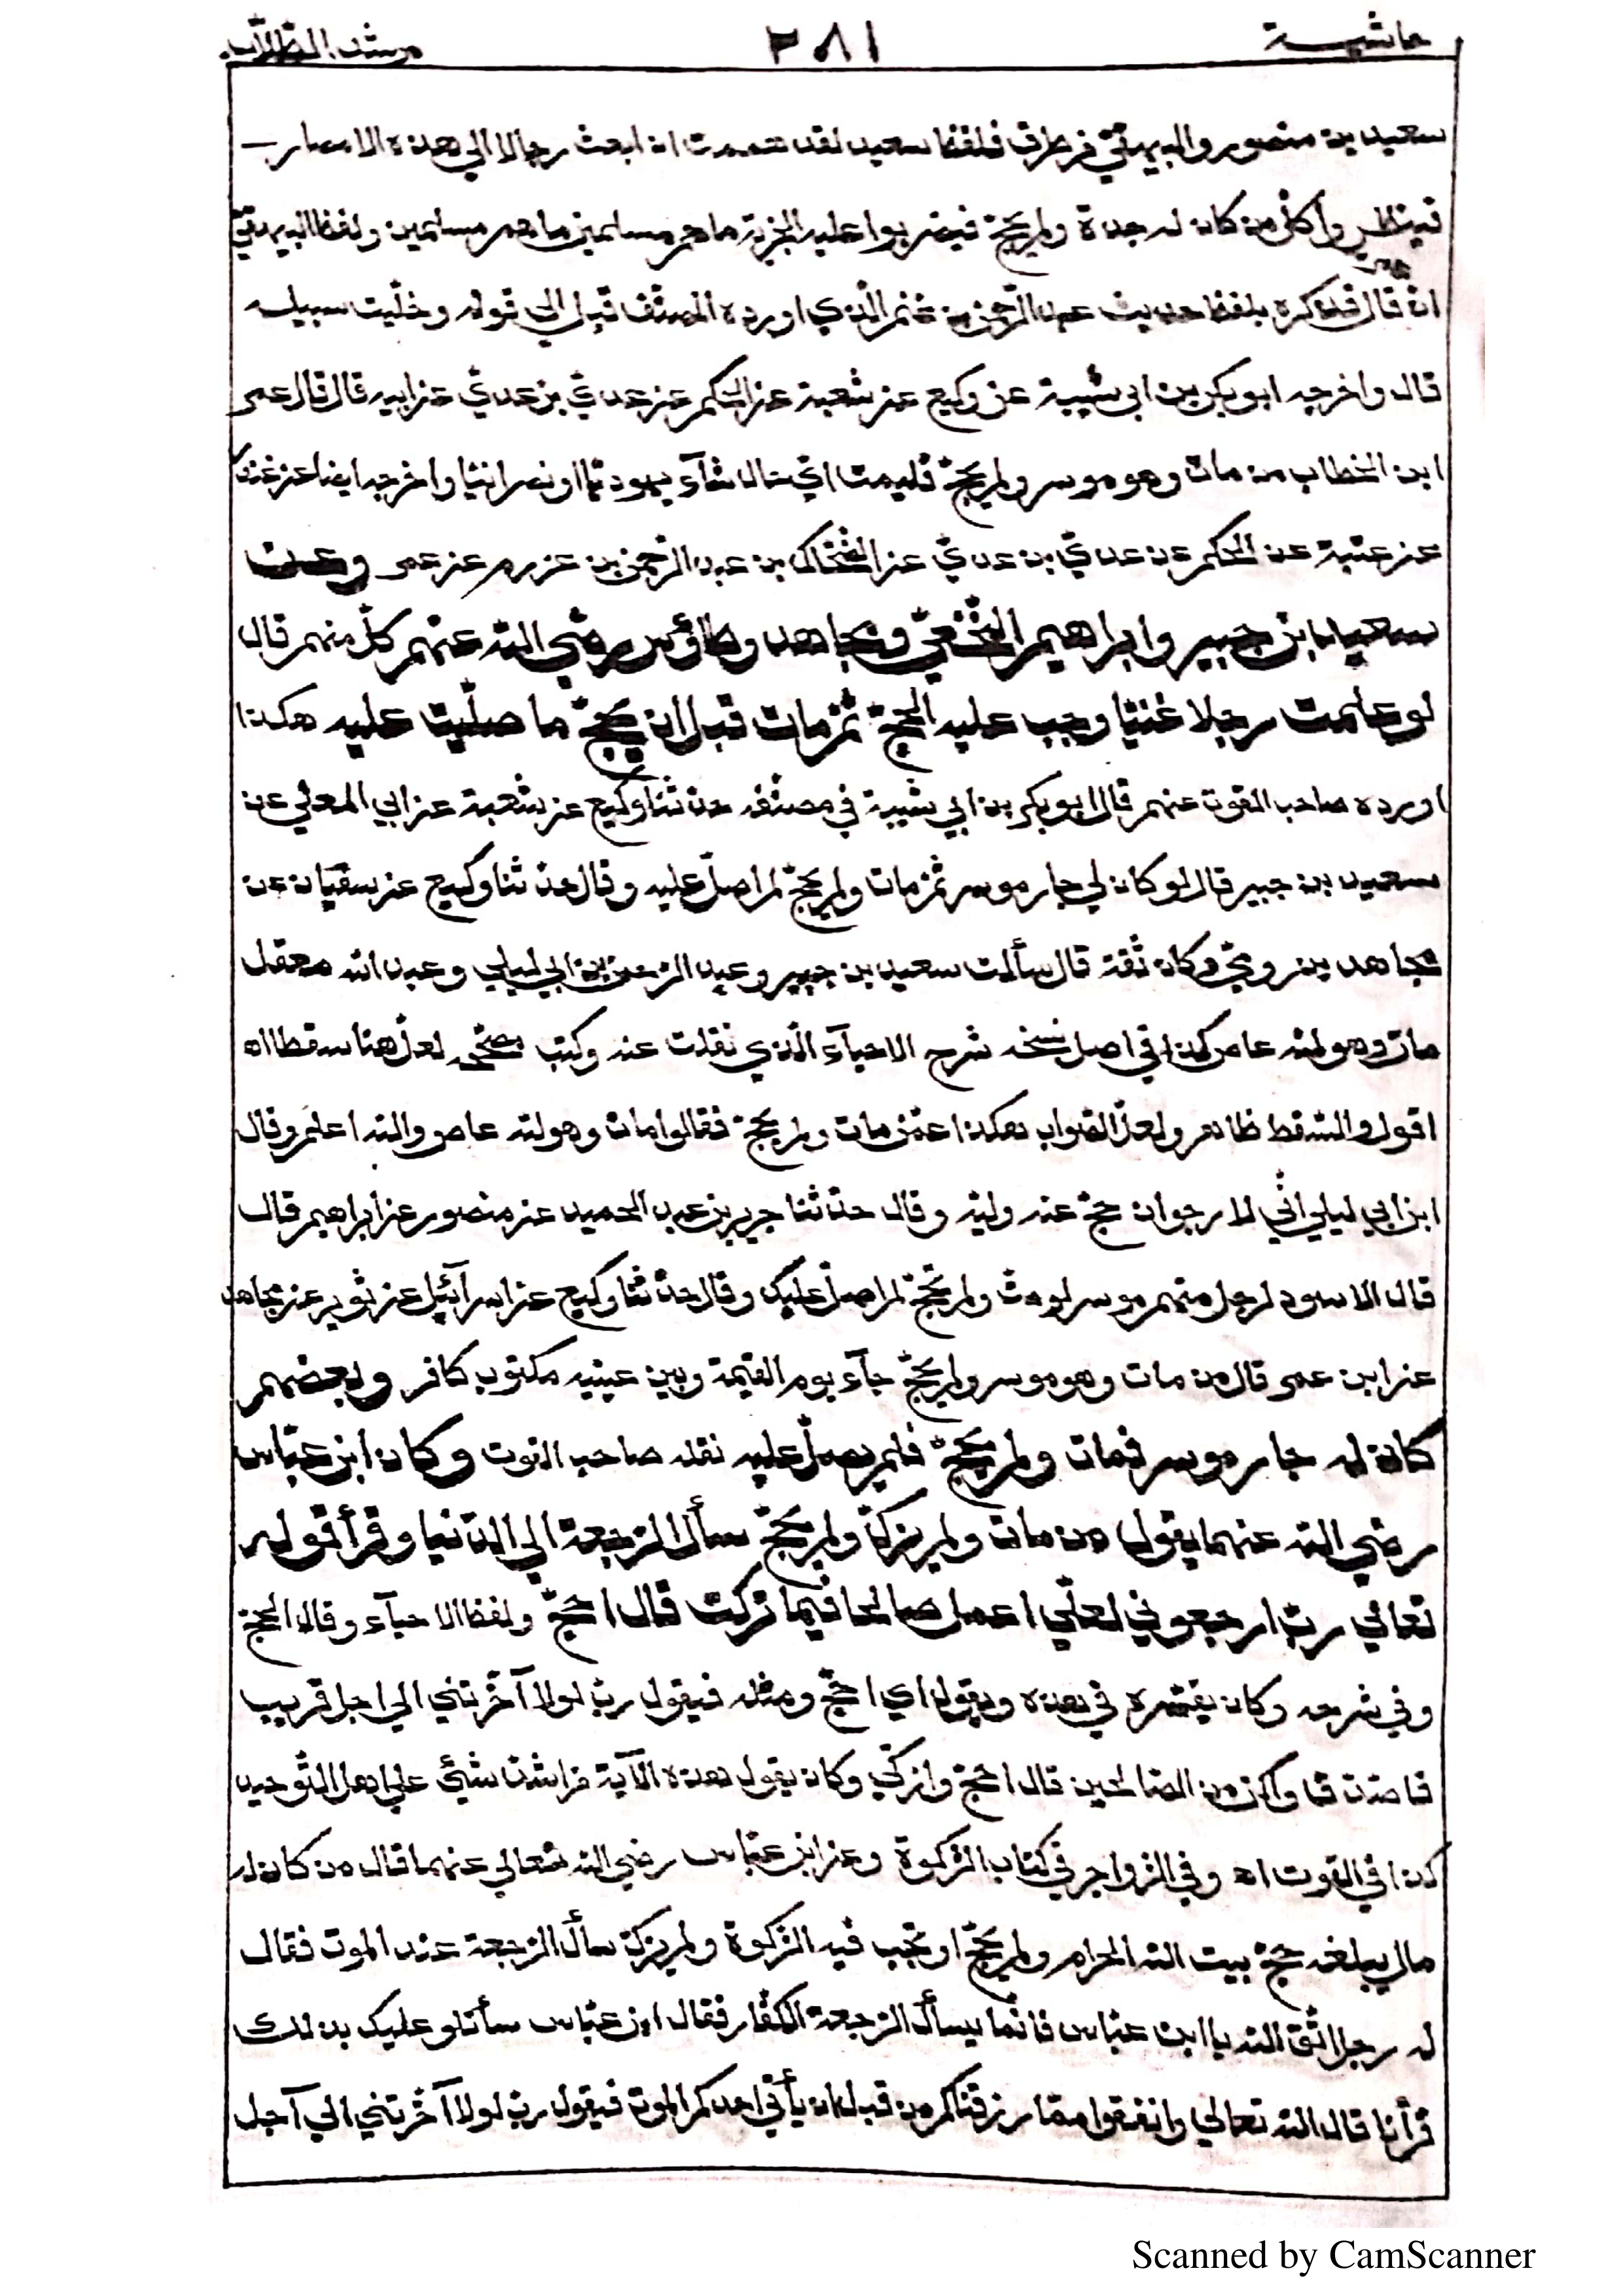 حاشية ٣٨١ مرشد الطلاب
سعيد بن منصور والبيهقي من طرق فلفظ سعيد لقد هممت ان ابعث رجالا الى هذه الامصار
فينظروا كل من كان له جدة ولم يحج فيضربوا عليه الجزية ما هم مسلمين ما هم مسلمين ولفظ البيهقي
ان قال فذكره بلفظ حديث عبد الرحمن بن غنم الذي اورده المصنف قبل الى قوله وخليت سبيله
قال واخرجه ابو بكر بن ابي شيبة عن وكيع عن شعبة عن الحكم عن عدي بن عدي عن ابيه قال قال عمر
ابن الخطاب من مات وهو موسر ولم يحج فليمت اي حال شآء يهوديا او نصرانيا واخرجه ايضا عن غندر
عن عتبة عن الحكم عن عدي بن عدي عن الضحاك بن عبد الرحمن بن عزرم عن عمر وعن
سعيد ابن جبير وابراهيم النخعي ومجاهد وطاؤس رضي الله عنهم كل منهم قال
لو علمت رجلا غنيا وجب عليه الحج ثم مات قبل ان يحج ما صليت عليه هكذا
اورده صاحب القوت عنهم قال ابو بكر بن ابي شيبة في مصنفه حدثنا وكيع عن شعبة عن ابي المعلي عن
سعيد بن جبير قال لو كان لي جار موسر ثم مات ولم يحج لم اصل عليه وقال حدثنا وكيع عن سفيان عن
مجاهد بن رومي وكان ثقة قال سألت سعيد بن جبير وعبد الرحمن بن ابي ليلي وعبد الله معقل
مات وهو لله عاص كذا في اصل نسخه شرح الاحيآء الذي نقلت عنه وكتب مصححه لعل هنا سقطا اه
اقول والسقط ظاهر ولعل الصواب هكذا عمن مات ولم يحج فقالوا مات وهو لله عاص والله اعلم وقال
ابن ابي ليلي اني لارجو ان حج عنه وليه وقال حدثنا جرير بن عبد الحميد عن منصور عن ابراهيم قال
قال الاسود لرجل منهم موسر لو مت ولم تحج لم اصل عليك وقال حدثنا وكيع عن اسرآئيل عن ثوير عن مجاهد
عن ابن عمر قال من مات وهو موسر ولم يحج جآء يوم القيمة وبين عينيه مكتوب كافر وبعضهم
كان له جار موسر فمات ولم يحج فلم يصل عليه نقله صاحب القوت وكان ابن عباس
رضي الله عنهما يقول من مات ولم يزك ولم يحج سأل الرجعة الي الدنيا وقرأ قوله
تعالي رب ارجعوني لعلي اعمل صالحا فيما تركت قال احج ولفظ الاحيآء وقال الحج
وفي شرحه وكان يفسره في هذه ويقول اي احج ومثله فيقول رب لولا آخرتني الي اجل قريب
فاصدق واكن من الصالحين قال احج وازكي وكان يقول هذه الآية من اشد شئي علي اهل التوحيد
كذا في القوت اه وفي الزواجر في كتاب الزكوة وعن ابن عباس رضي الله تعالي عنهما قال من كان له
مال يبلغه حج بيت الله الحرام ولم يحج او تجب فيه الزكوة ولم يزك سأل الرجعة عند الموت فقال
له رجل اتق الله يا ابن عباس فانما يسأل الرجعة الكفار فقال ابن عباس سأتلو عليك بذلك
قرأنا قال الله تعالي وانفقوا مما رزقناكم من قبل ان يأتي احدكم الموت فيقول رب لولا آخرتني الي آجل
Scanned by CamScanner